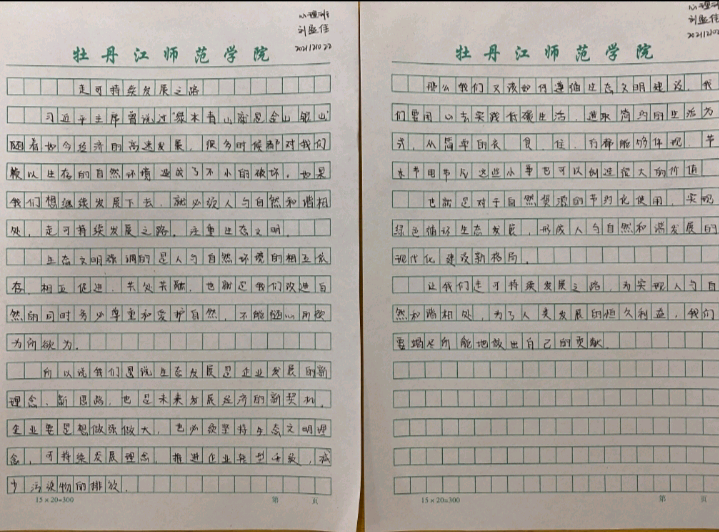 心理班
刘
20211022
牡丹江师范学院
走可持续发展之路
习近平主席曾说过“绿水青山就是金山银山”
随着如今经济的高速发展，很多时候都对我们
赖以生存的自然环境造成了不小的破坏。如果
我们想继续发展下去，就必须人与自然和谐相
处，走可持续发展之路，注重生态文明。
生态文明强调的是人与自然环境的相互依
存，相互促进，共处共融，也就是我们改造自
然的同时务必尊重和爱护自然，不能随心所欲
为所欲为。
所以说我们思说生态发展是企业发展的新
理念，新思路，也是未来发展经济的新契机，
企业要是想做强做大，也必须坚持生态文明理
念，可持续发展理念，推进企业转型升级，减
少污染物的排放。
15×20=300 第 页
心理班
刘
20211022
牡丹江师范学院
那么我们又该如何遵循生态文明建设，我
们要用心去实践低碳生活，选取简约的生活方
式，从简单的衣、食、住、行都能够体现，节
水节用节电这些小事也可以创造很大的价值
也就是对于自然资源的节约化使用，实现
绿色循环生态发展，形成人与自然和谐发展的
现代化建设新格局。
让我们走可持续发展之路，为实现人与自
然和谐相处，为了人类发展的恒久利益，我们
要竭尽所能地做出自己的贡献。
15×20=300 第 页